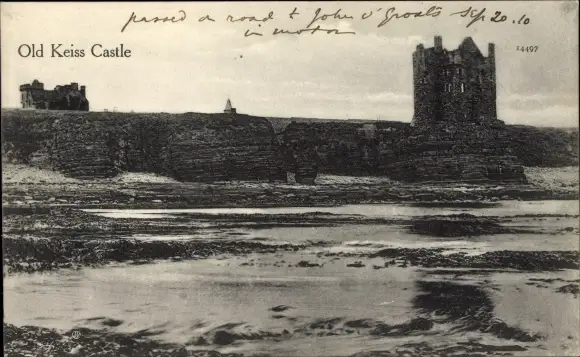 passed on road to John o' Groats Sep 20. 10
in motor
Old Keiss Castle
14497